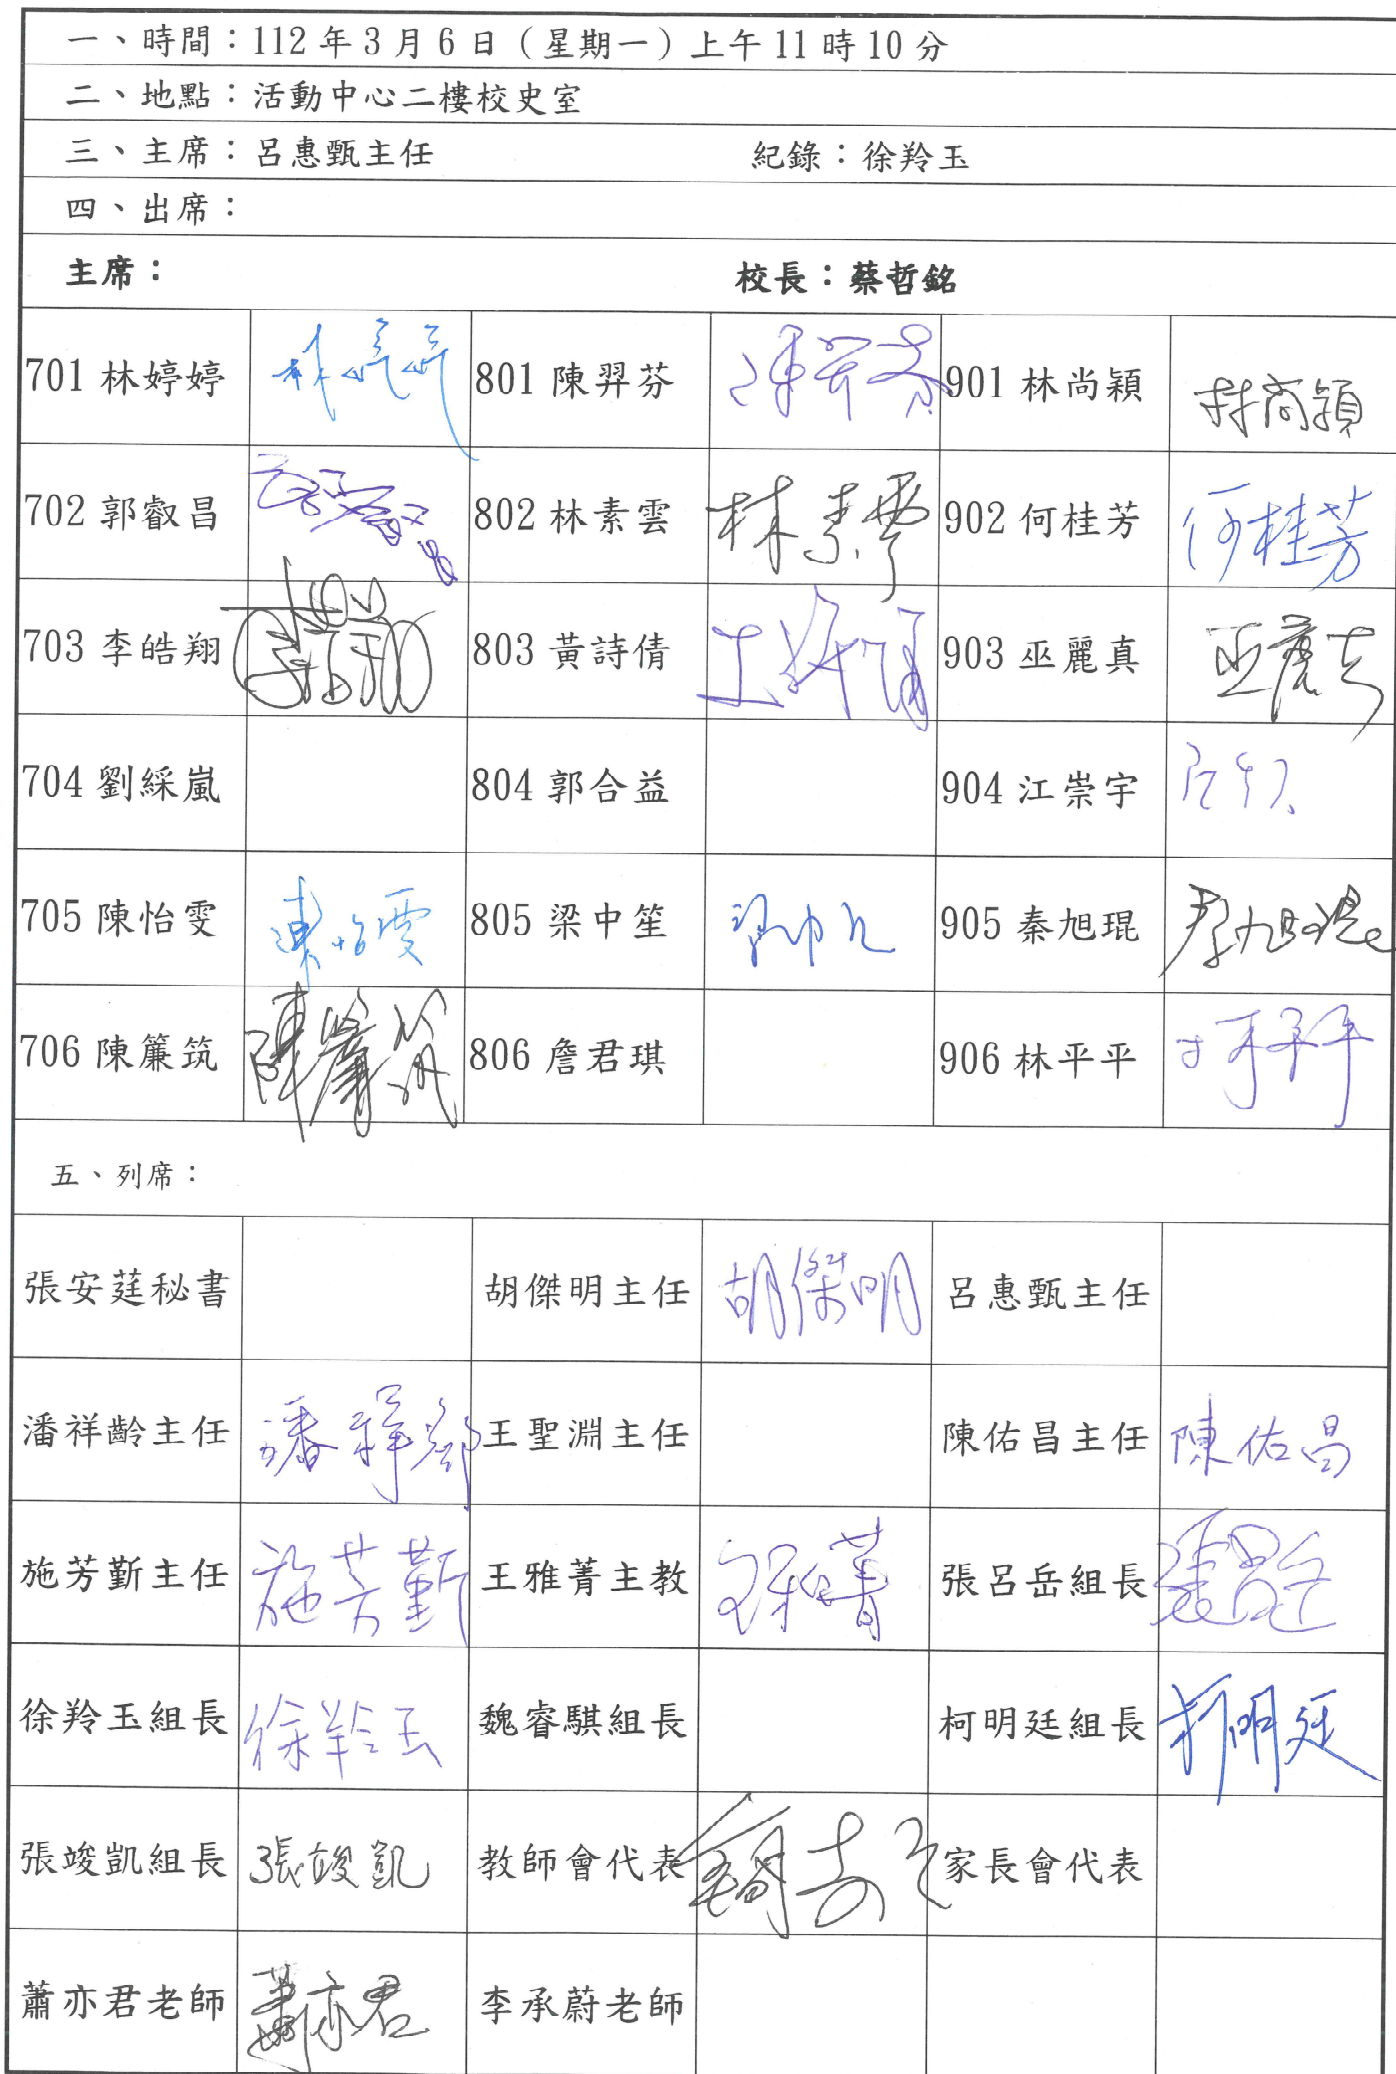 一、時間：112年3月6日（星期一）上午11時10分
二、地點：活動中心二樓校史室
三、主席：呂惠甄主任 紀錄：徐羚玉
四、出席：
主席： 校長：蔡哲銘
701 林婷婷 林婷婷 801 陳羿芬 陳羿芬 901 林尚穎 林尚穎
702 郭叡昌 802 林素雲 林素雲 902 何桂芳 何桂芳
703 李皓翔 李皓翔 803 黃詩倩 903 巫麗真 巫麗真
704 劉綵嵐 804 郭合益 904 江崇宇
705 陳怡雯 陳怡雯 805 梁中笙 905 秦旭琨 秦旭琨
706 陳簾筑 陳簾筑 806 詹君琪 906 林平平 林平平
五、列席：
張安莛秘書 胡傑明主任 胡傑明 呂惠甄主任
潘祥齡主任 潘祥齡 王聖淵主任 陳佑昌主任 陳佑昌
施芳斳主任 施芳斳 王雅菁主教 王雅菁 張呂岳組長 張呂岳
徐羚玉組長 徐羚玉 魏睿騏組長 柯明廷組長 柯明廷
張竣凱組長 張竣凱 教師會代表 家長會代表
蕭亦君老師 蕭亦君 李承蔚老師